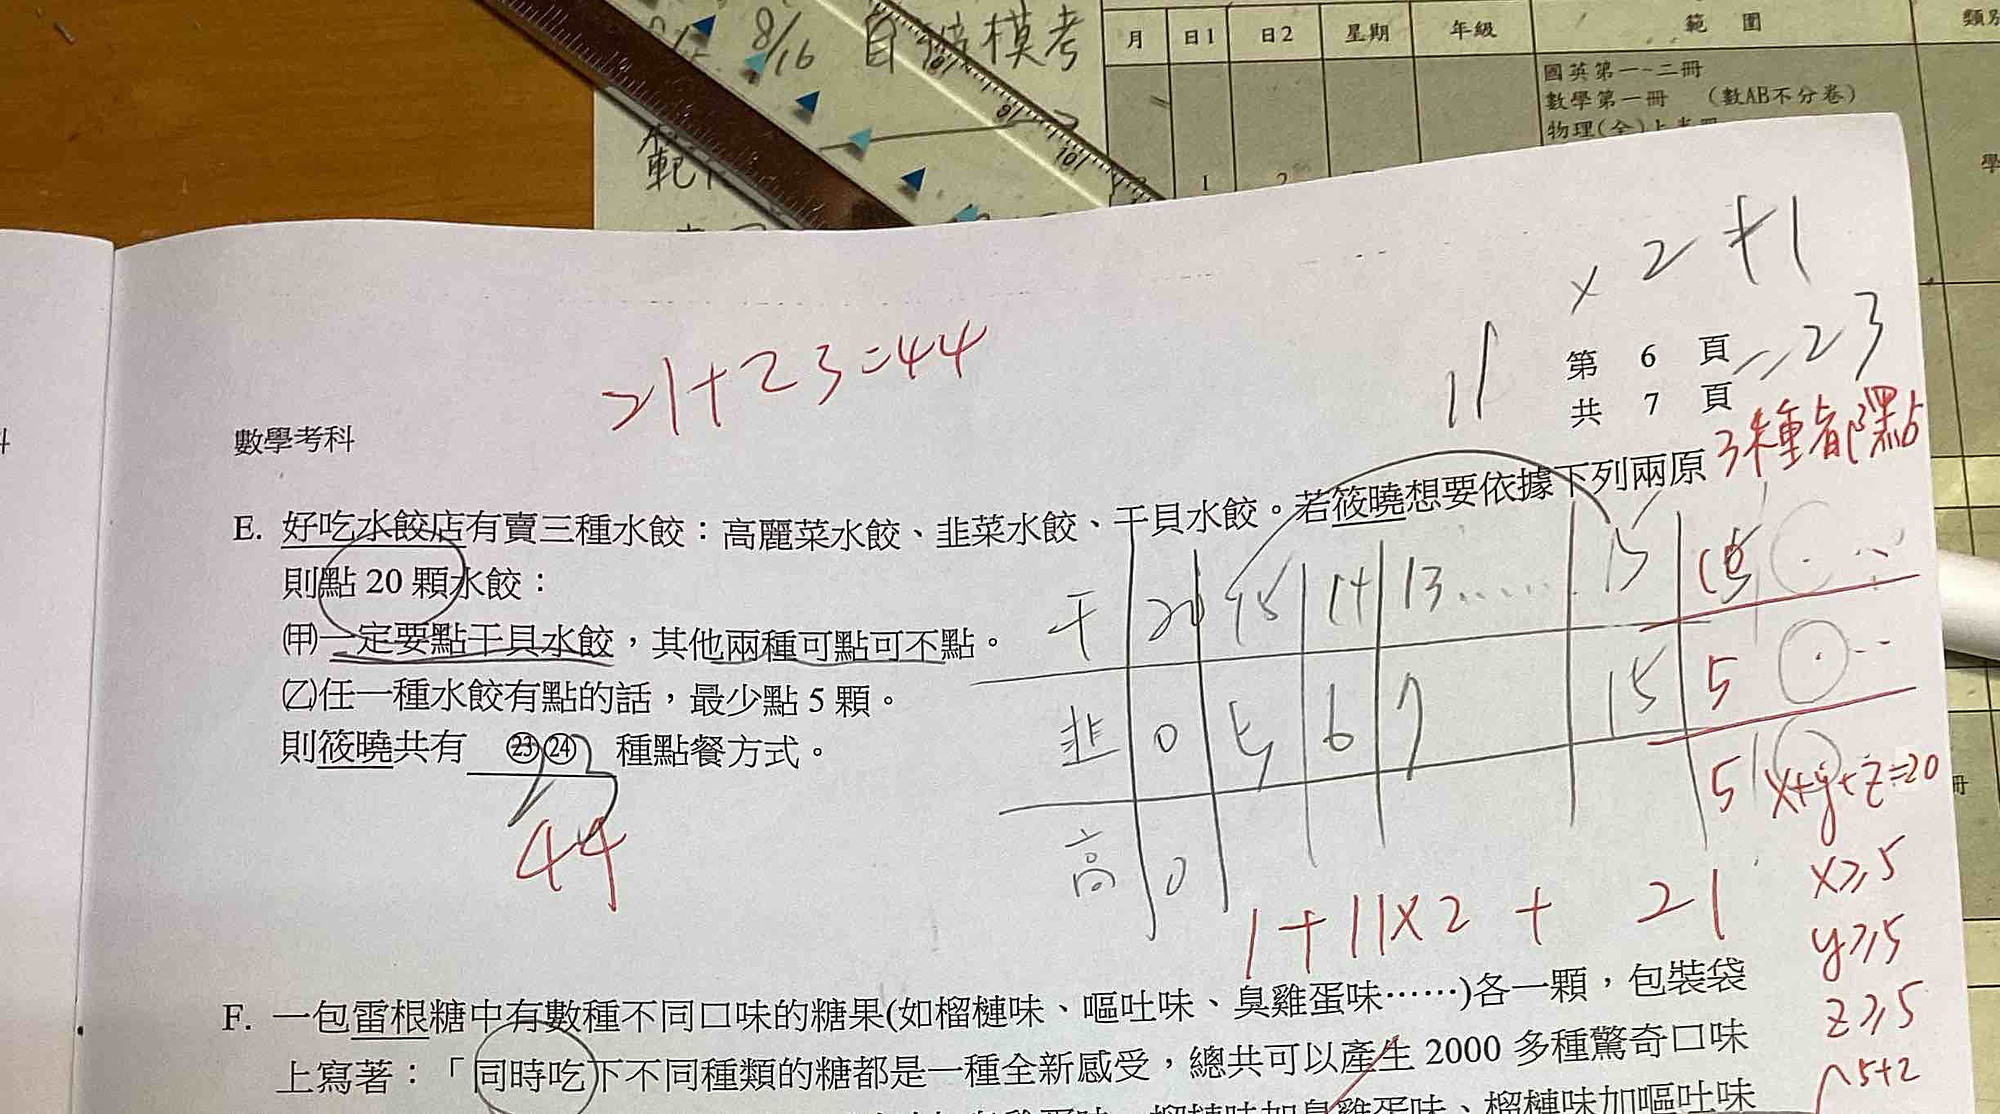 8/16 自 模考
月 日1 日2 星期 年級 範圍 類別
國英第一~二冊
數學第一冊 (數AB不分卷)
物理(全)
1 2
學
範
x 2 +1
11
=23
21+23=44
第 6 頁
共 7 頁
數學考科
3種都點
E. 好吃水餃店有賣三種水餃：高麗菜水餃、韭菜水餃、干貝水餃。若筱曉想要依據下列兩原
則點 20 顆水餃：
㈙一定要點干貝水餃，其他兩種可點可不點。
㈚任一種水餃有點的話，最少點 5 顆。
則筱曉共有 ㉓㉔ 種點餐方式。
23
44
干 20 15 14 13 …… 15
韭 0 5 6 7 15 5
高 0 5
x+y+z=20
x≥5
y≥5
z≥5
1+11x2 + 21
F. 一包雷根糖中有數種不同口味的糖果(如榴槤味、嘔吐味、臭雞蛋味……)各一顆，包裝袋
上寫著：「同時吃下不同種類的糖都是一種全新感受，總共可以產生 2000 多種驚奇口味
榴槤味加臭雞蛋味、榴槤味加嘔吐味
5+2
冊